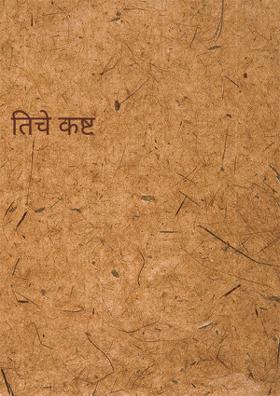 तिचे कष्ट